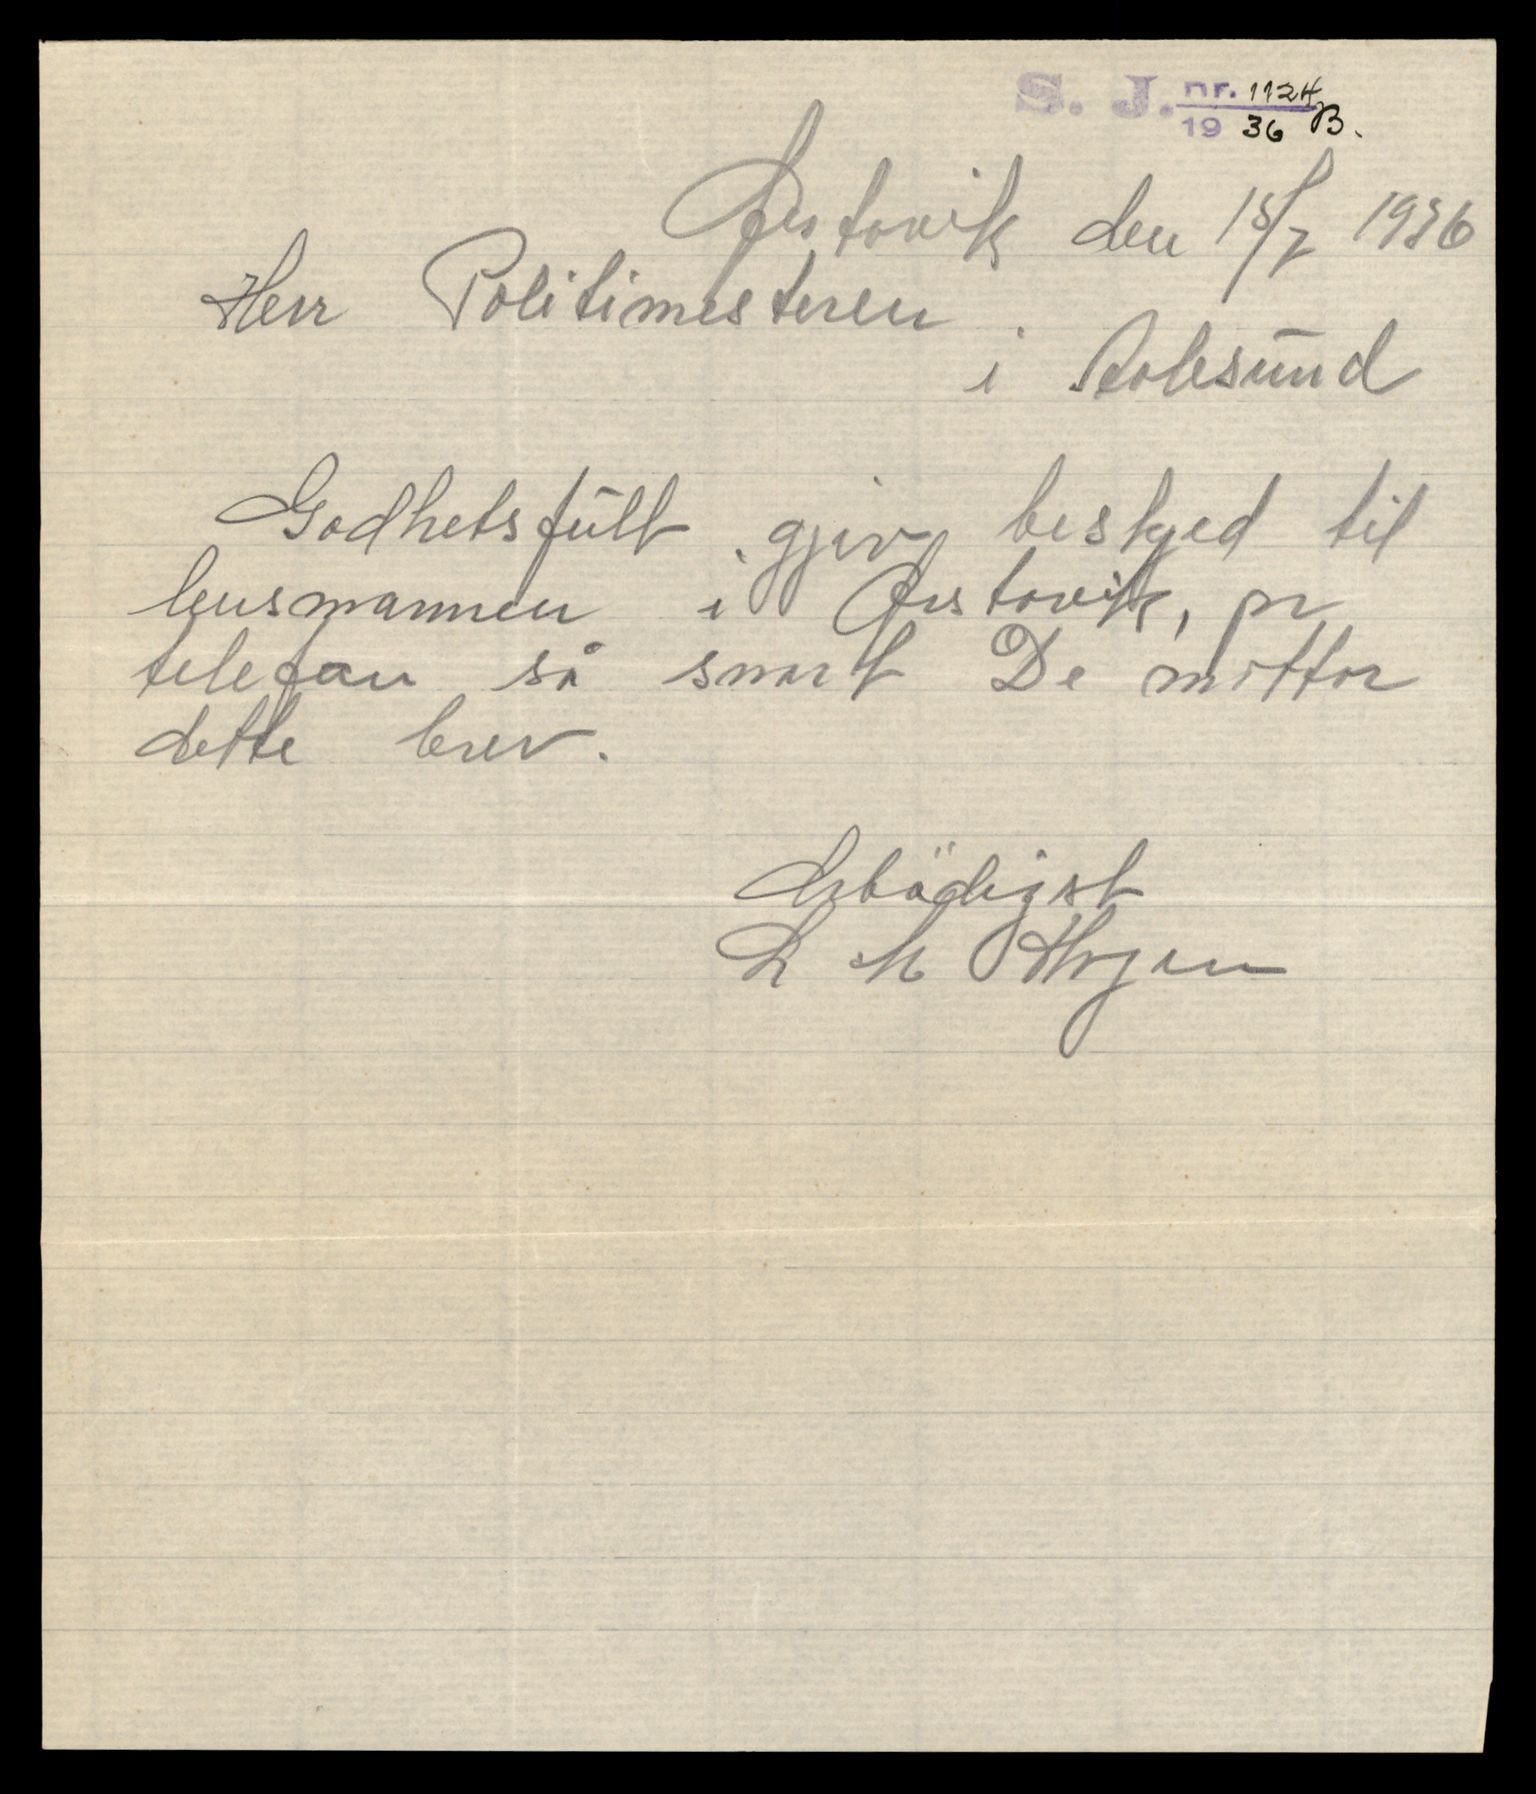 S. J. nr. 1124
19 36 B.
Årstovik den 15/7 1936
Herr Politimesteren
i Aalesund
Godhetsfult gjiv beskjed til
lensmannen i Årstovik, pr
telefon så snart De mottar
dette brev.
Ærbödigst
L M